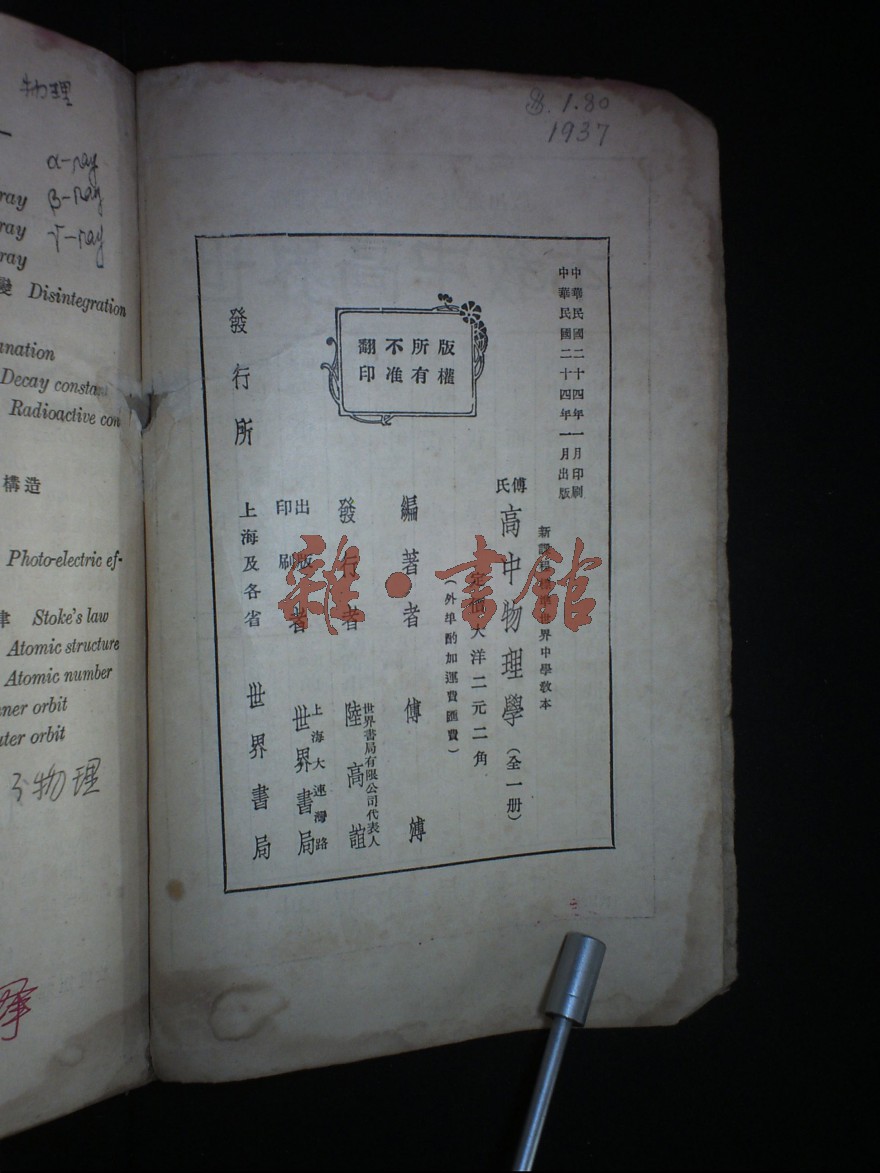 物理
α-ray
ray β-ray
ray γ-ray
ray
變 Disintegration
Decay constan
Radioactive con
構造
Photo-electric ef-
Stoke's law
Atomic structure
Atomic number
ner orbit
uter orbit
物理
1.80
1937
中華民國二十四年一月印刷
中華民國二十四年一月出版
版權
所有
不准
翻印
世界中學教本
傅氏高中物理學（全一册）
定價大洋二元二角
（外埠酌加運費匯費）
編著者 傅溥
發行者 世界書局有限公司代表人 陸高誼
出版印刷者 上海大連灣路 世界書局
發行所 上海及各省 世界書局
雜·書館